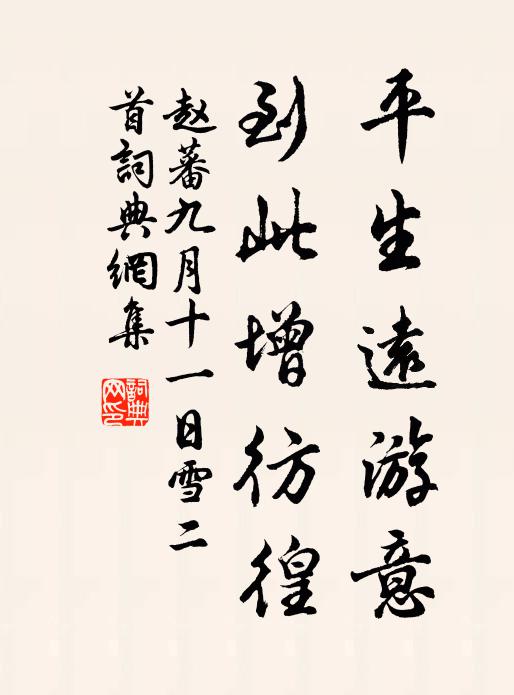 平生遠游意
到此增彷徨
赵蕃九月十一日雪二
首詞典網集
詞典网印